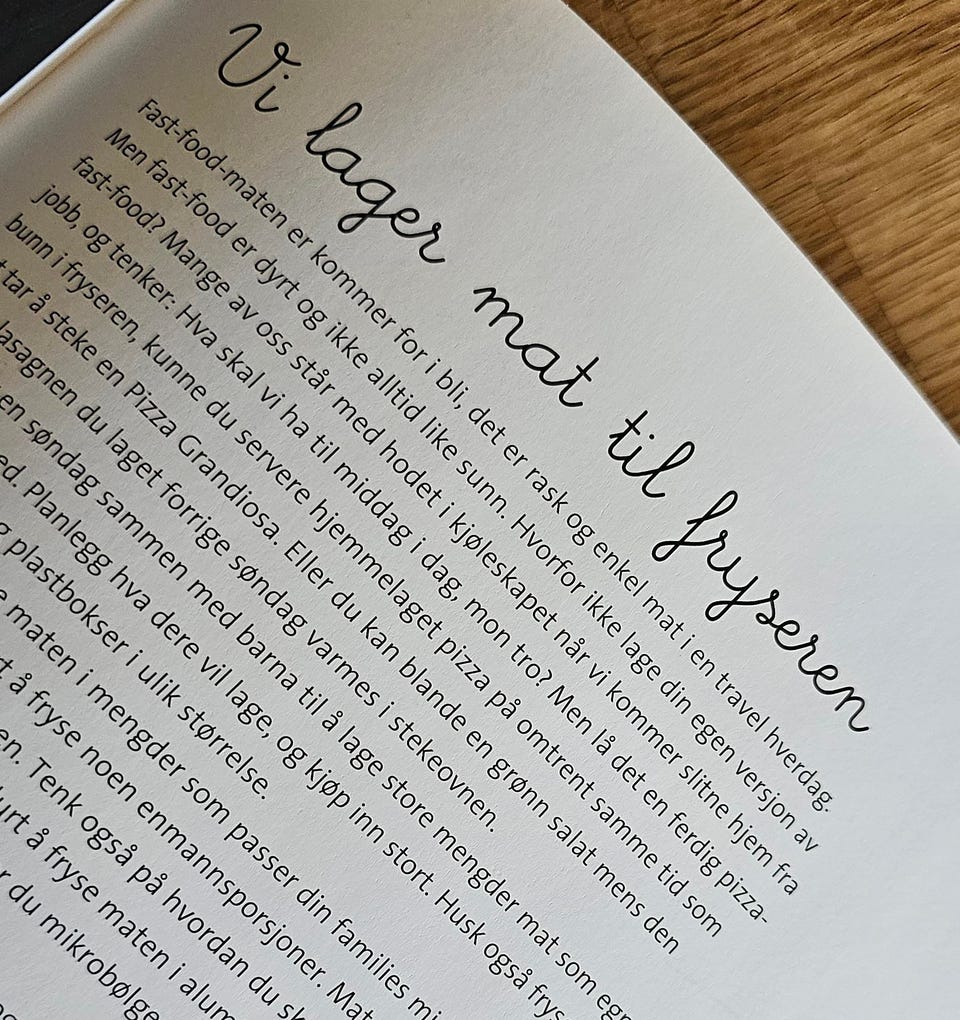 Vi lager mat til fryseren
Fast-food-maten er kommer for i bli, det er rask og enkel mat i en travel hverdag.
Men fast-food er dyrt og ikke alltid like sunn. Hvorfor ikke lage din egen versjon av
fast-food? Mange av oss står med hodet i kjøleskapet når vi kommer slitne hjem fra
jobb, og tenker: Hva skal vi ha til middag i dag, mon tro? Men lå det en ferdig pizza-
bunn i fryseren, kunne du servere hjemmelaget pizza på omtrent samme tid som
tar å steke en Pizza Grandiosa. Eller du kan blande en grønn salat mens den
lasagnen du laget forrige søndag varmes i stekeovnen.
en søndag sammen med barna til å lage store mengder mat som egn
ed. Planlegg hva dere vil lage, og kjøp inn stort. Husk også frys
g plastbokser i ulik størrelse.
e maten i mengder som passer din families mi
t å fryse noen enmannsporsjoner. Mat
en. Tenk også på hvordan du sk
urt å fryse maten i alum
r du mikrobølge